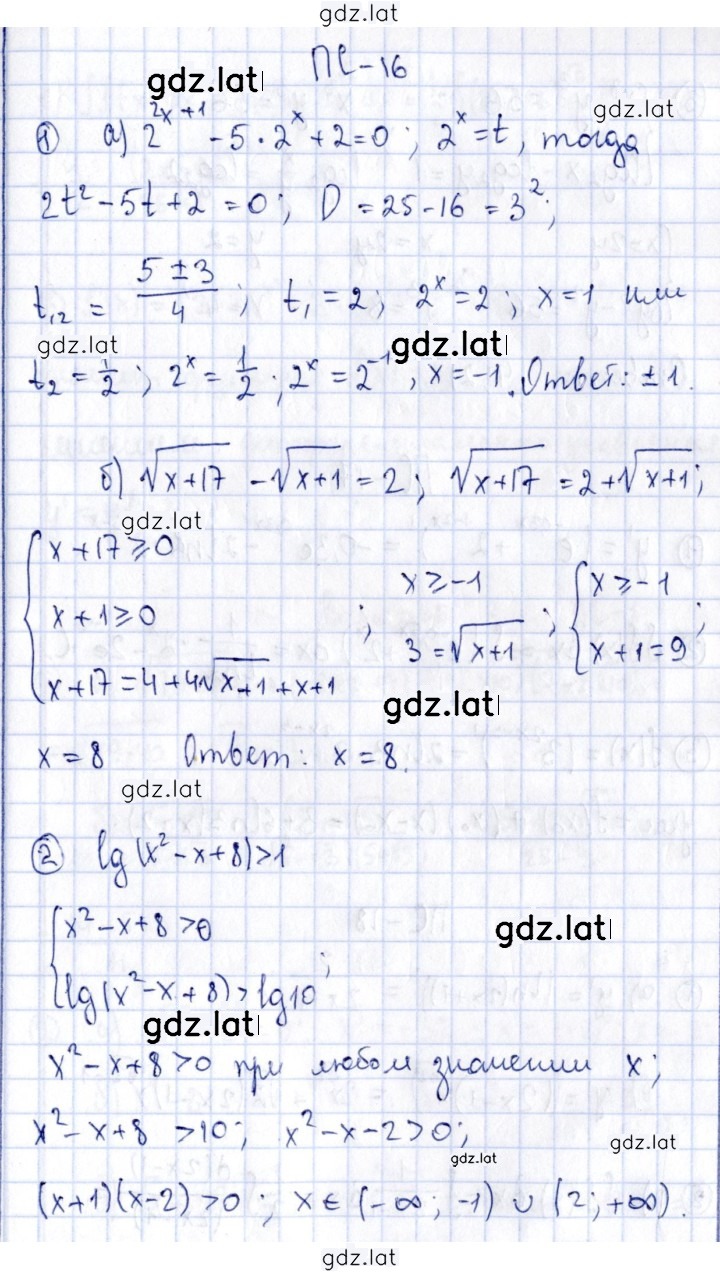 gdz.lat
ПС-16
gdz.lat
gdz.lat
① а) 2^{2x+1} - 5·2^x + 2 = 0; 2^x = t, тогда
2t² - 5t + 2 = 0; D = 25 - 16 = 3²;
t₁,₂ = (5 ± 3)/4; t₁ = 2; 2^x = 2; x = 1 или
gdz.lat
gdz.lat
t₂ = 1/2; 2^x = 1/2; 2^x = 2^{-1}, x = -1. Ответ: ± 1.
б) √(x+17) - √(x+1) = 2; √(x+17) = 2 + √(x+1);
gdz.lat
{ x + 17 ≥ 0
x + 1 ≥ 0
x + 17 = 4 + 4√(x+1) + x + 1
; x ≥ -1
3 = √(x+1)
; { x ≥ -1
x + 1 = 9;
gdz.lat
x = 8 Ответ: x = 8.
gdz.lat
② lg(x² - x + 8) > 1
{ x² - x + 8 > 0
gdz.lat
lg(x² - x + 8) > lg10;
gdz.lat
x² - x + 8 > 0 при любом значении x;
x² - x + 8 > 10; x² - x - 2 > 0;
gdz.lat
gdz.lat
(x+1)(x-2) > 0; x ∈ (-∞; -1) ∪ (2; +∞).
gdz.lat